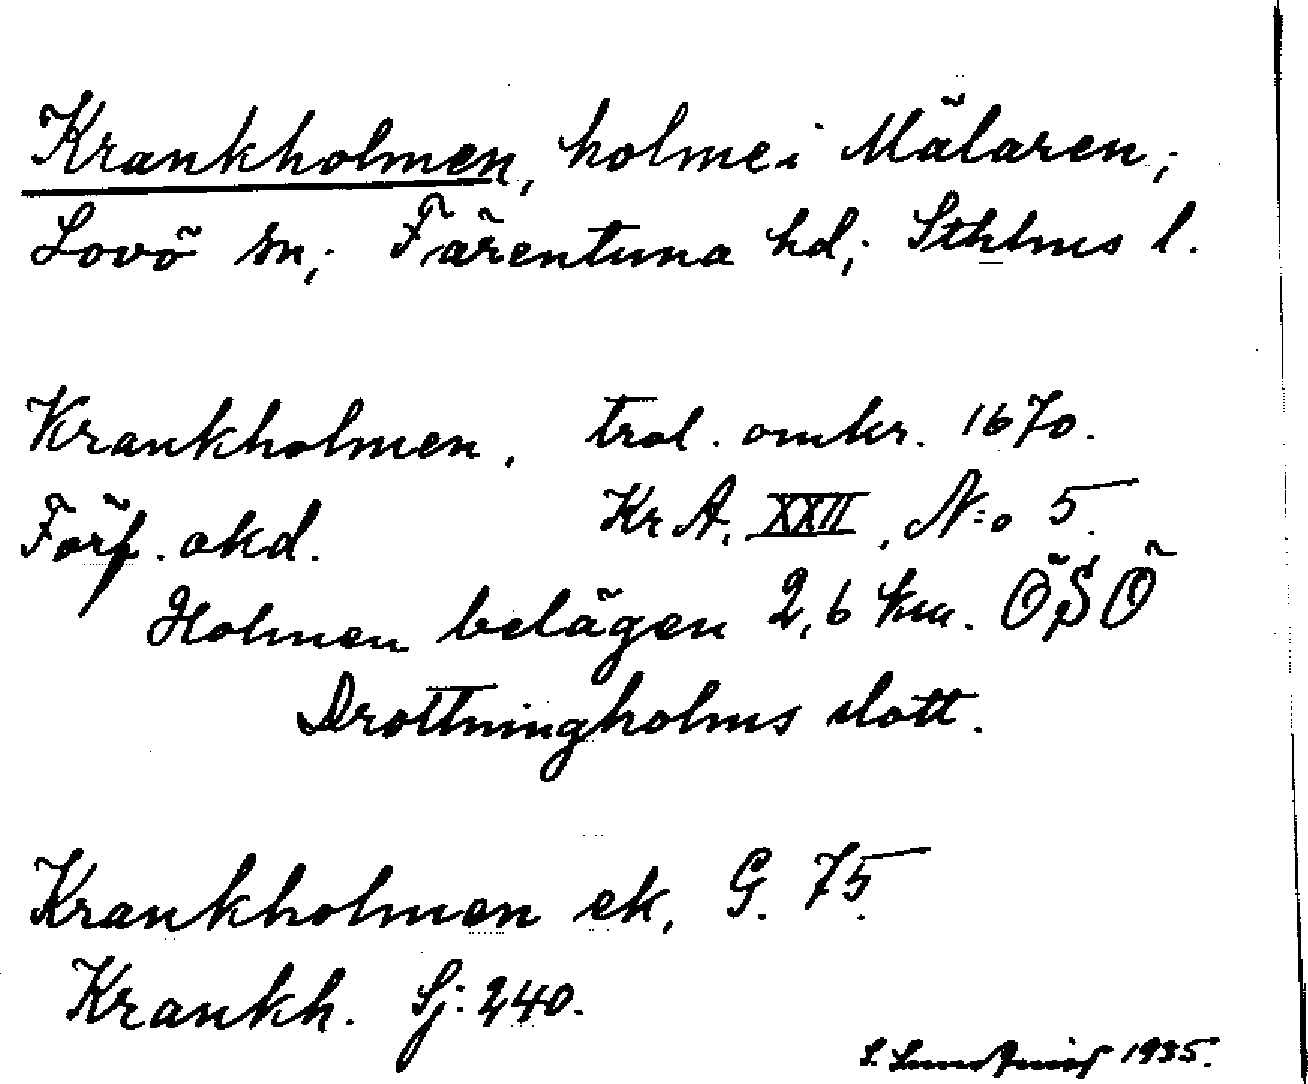 Krankholmen, holme i Mälaren;
Lovö sn; Färentuna hd; Sthlms l.
Krankholmen. trol. omkr. 1670.
Förf. okd. Kr A. XXII, N:o 5.
Holmen belägen 2,6 km. ÖSÖ
Drottningholms slott.
Krankholmen ek. G. 75.
Krankh. Sj: 240.
S. 1935.